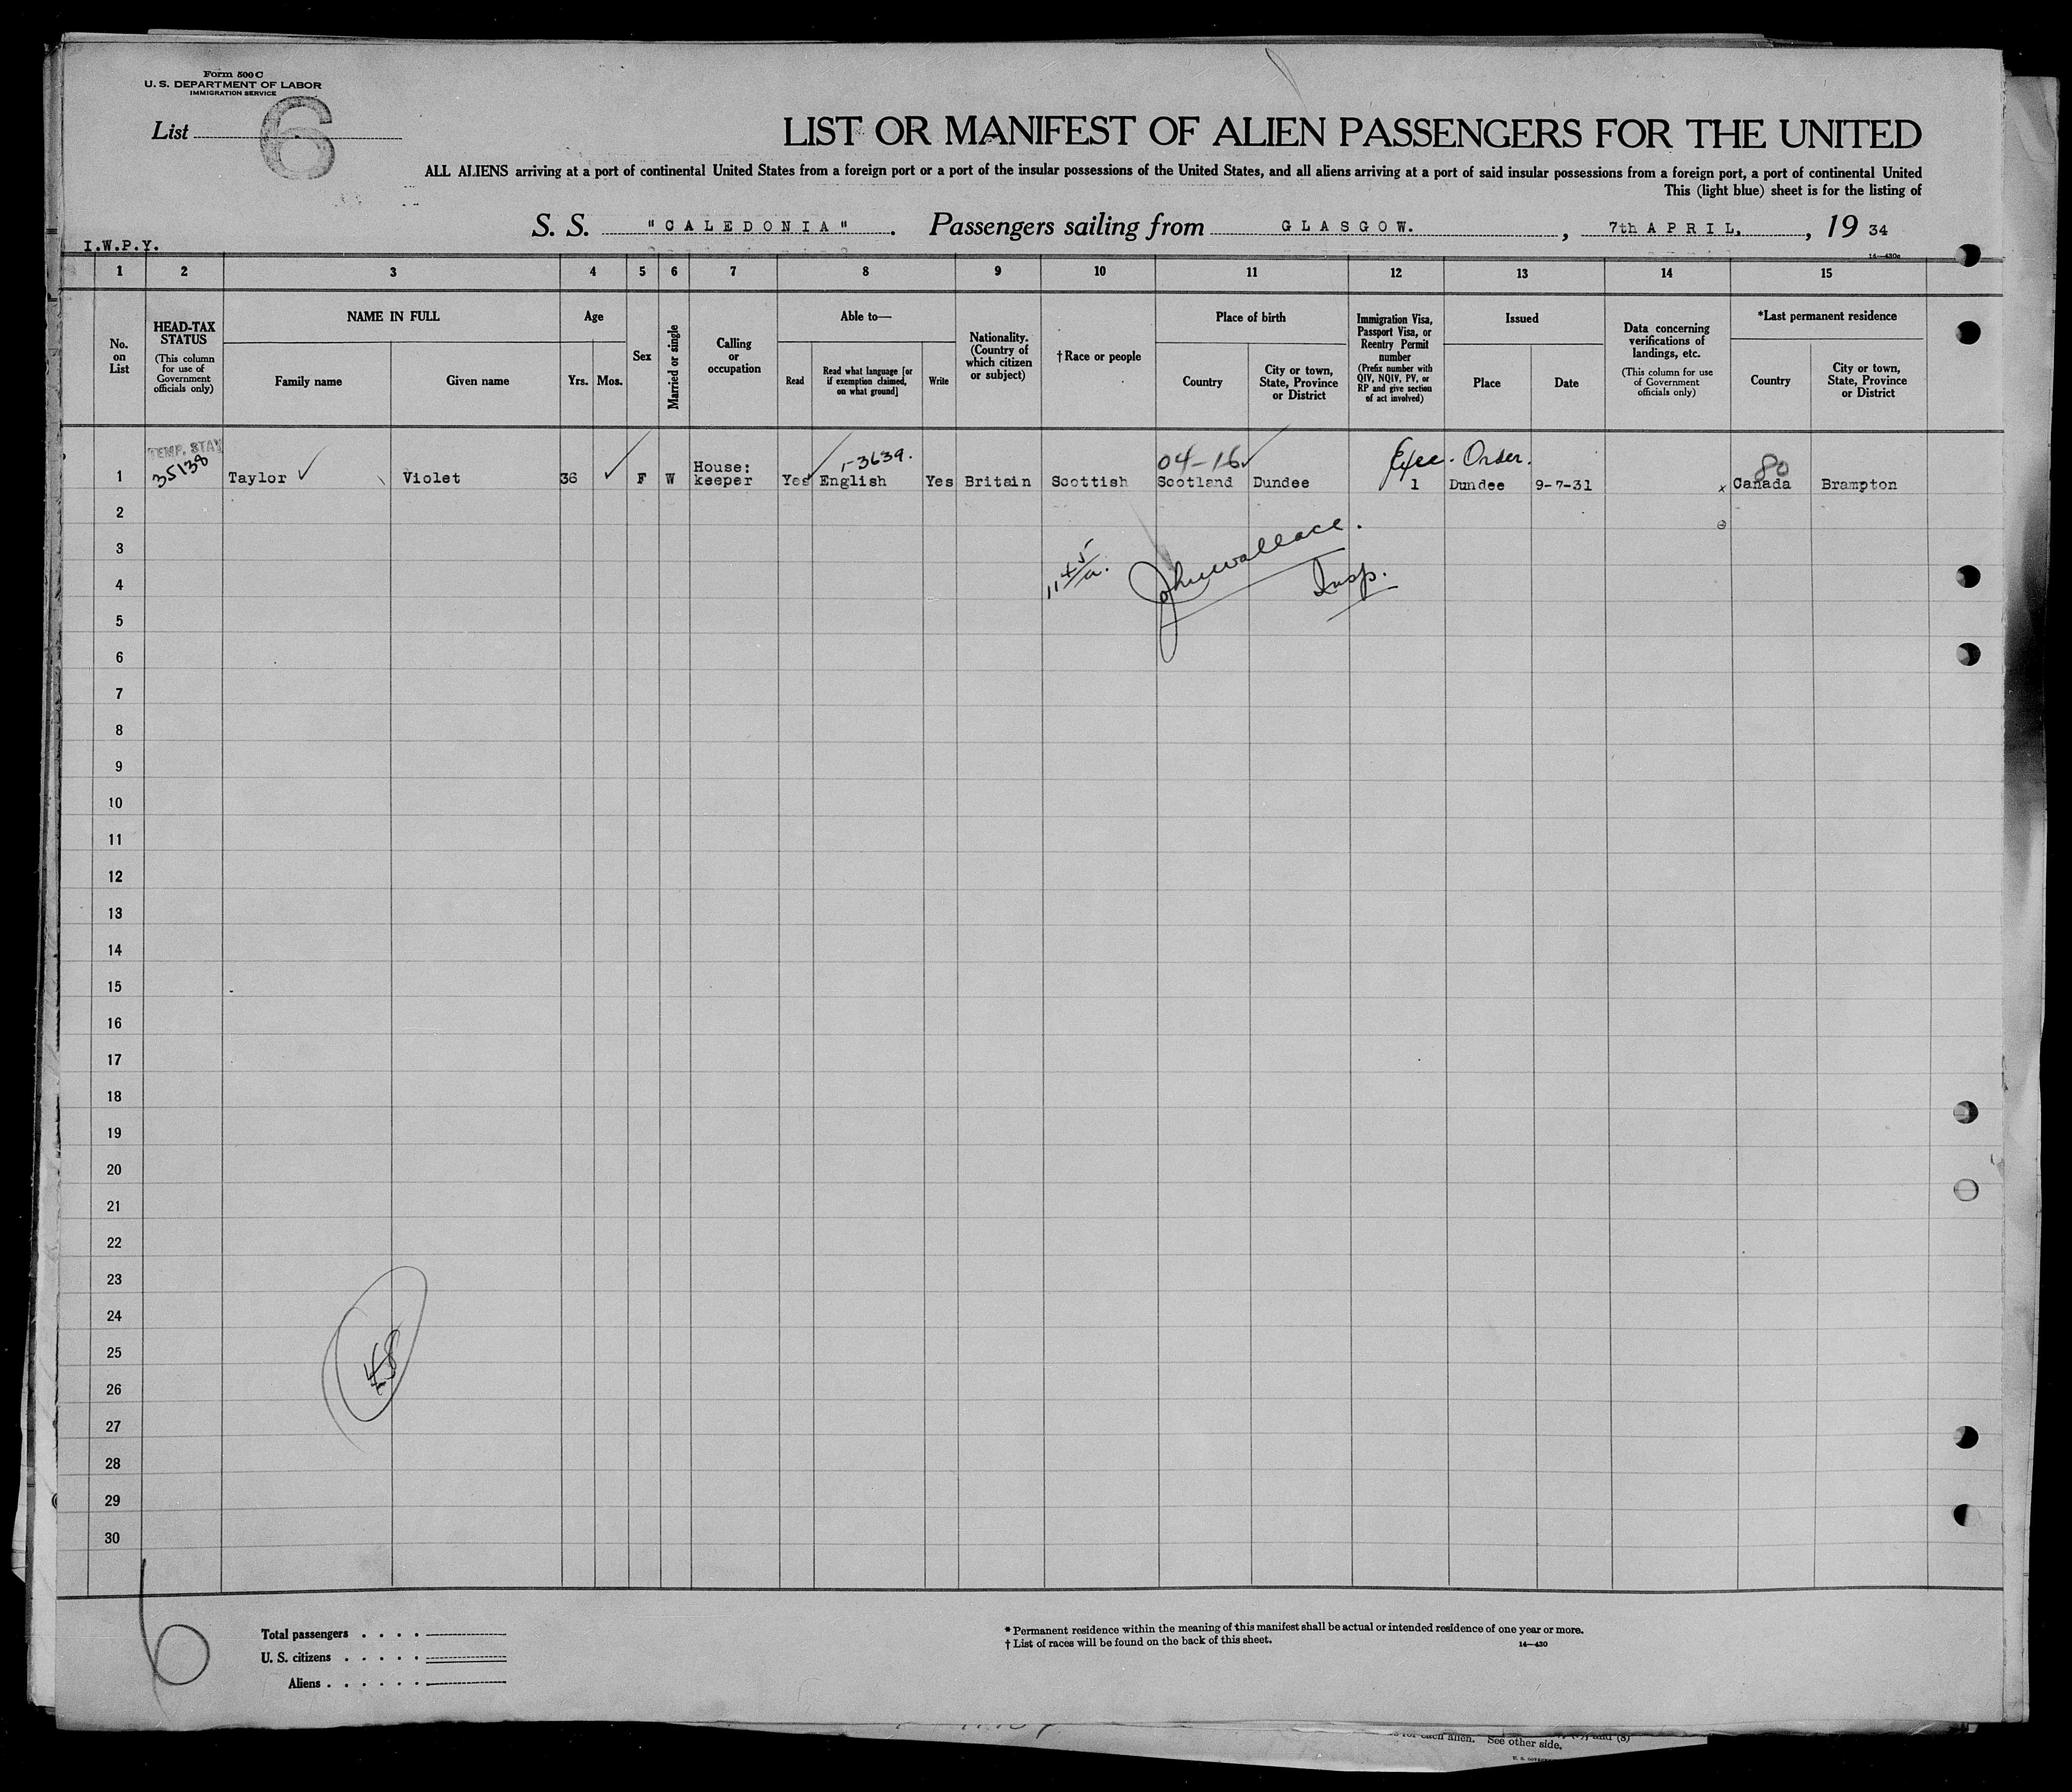 Form 500 C
U. S. DEPARTMENT OF LABOR
IMMIGRATION SERVICE
List 6
LIST OR MANIFEST OF ALIEN PASSENGERS FOR THE UNITED
ALL ALIENS arriving at a port of continental United States from a foreign port or a port of the insular possessions of the United States, and all aliens arriving at a port of said insular possessions from a foreign port, a port of continental United
This (light blue) sheet is for the listing of
S. S. "CALEDONIA". Passengers sailing from GLASGOW., 7th APRIL, 1934
I.W.P.Y.
14—430c
1 2 3 4 5 6 7 8 9 10 11 12 13 14 15
No. on List
HEAD-TAX STATUS
(This column for use of Government officials only)
NAME IN FULL
Family name Given name
Age
Yrs. Mos.
Sex
Married or single
Calling or occupation
Able to—
Read
Read what language [or if exemption claimed, on what ground]
Write
Nationality. (Country of which citizen or subject)
†Race or people
Place of birth
Country
City or town, State, Province or District
Immigration Visa, Passport Visa, or Reentry Permit number
(Prefix number with QIV, NQIV, PV, or RP and give section of act involved)
Issued
Place Date
Data concerning verifications of landings, etc.
(This column for use of Government officials only)
*Last permanent residence
Country
City or town, State, Province or District
TEMP. STAY
35138
1-3639.
04-16
Exec. Order.
80
1 Taylor Violet 36 F W House: keeper Yes English Yes Britain Scottish Scotland Dundee 1 Dundee 9-7-31 x Canada Brampton
2
3
John Wallace.
11 45/a.
4
Insp.
5
6
7
8
9
10
11
12
13
14
15
16
17
18
19
20
21
22
23
24
25
48
26
27
28
29
30
6
Total passengers
U. S. citizens
Aliens
* Permanent residence within the meaning of this manifest shall be actual or intended residence of one year or more.
† List of races will be found on the back of this sheet.
14—430
each alien. See other side.